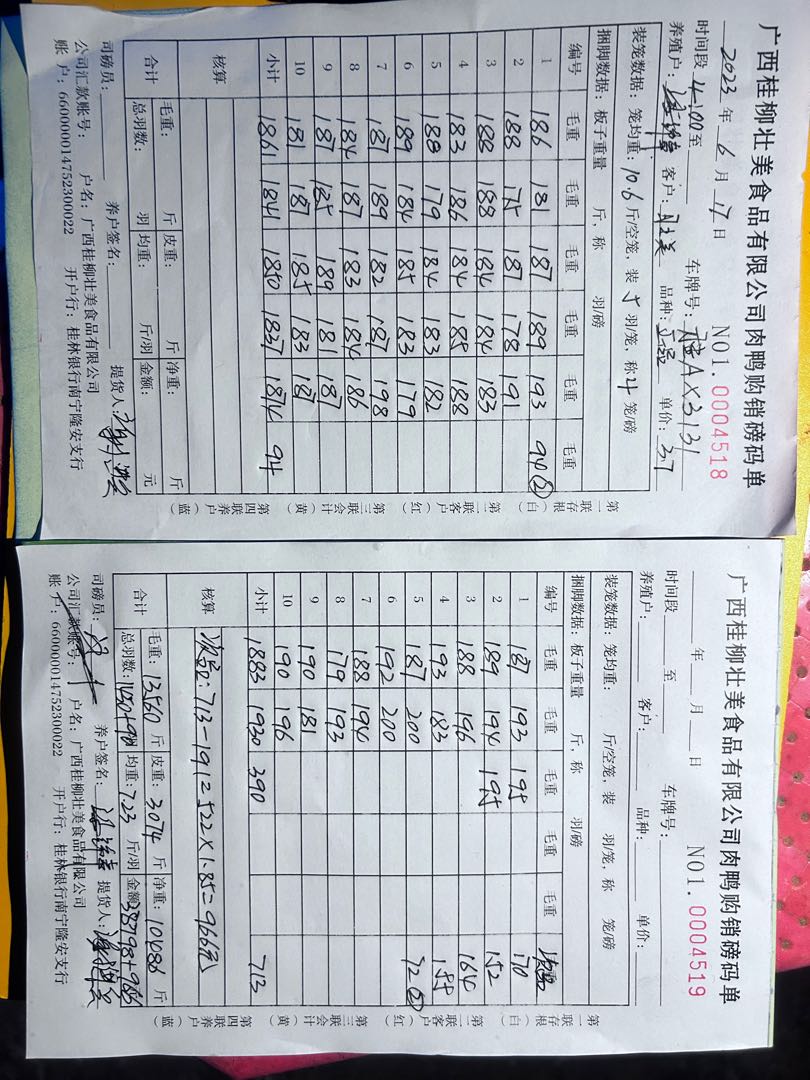 广西桂柳壮美食品有限公司肉鸭购销磅码单
NO1.0004518
2023年6月17日
时间段 4:00至 车牌号:桂AX3131
养殖户: 客户: 品种:正品 单价:3.7
装笼数据:笼均重:10.6斤/空笼,装5羽/笼,称4笼/磅
捆脚数据:板子重量 斤,称 羽/磅
编号 毛重 毛重 毛重 毛重 毛重 毛重
1 186 181 187 189 193 94②
2 188 175 187 178 191
3 188 188 184 184 183
4 183 186 184 185 188
5 188 179 184 183 182
6 189 184 185 183 179
7 187 189 182 187 198
8 184 187 183 184 186
9 187 185 189 181 187
10 181 187 185 183 187
小计 1861 1841 1850 1837 1874 94
核算
合计 毛重: 斤 皮重: 斤 净重: 斤
总羽数: 羽 均重: 斤/羽 金额: 元
司磅员: 养户签名: 提货人:
公司汇款账号: 户名:广西桂柳壮美食品有限公司
账户:660000014752300022 开户行:桂林银行南宁隆安支行
第一联存根(白) 第二联客户(红) 第三联会计(黄) 第四联养户(蓝)
广西桂柳壮美食品有限公司肉鸭购销磅码单
NO1.0004519
年 月 日
时间段 至 车牌号:
养殖户: 客户: 品种: 单价:
装笼数据:笼均重: 斤/空笼,装 羽/笼,称 笼/磅
捆脚数据:板子重量 斤,称 羽/磅
编号 毛重 毛重 毛重 毛重 毛重
1 187 193 195 170
2 189 194 195 152
3 188 196 164
4 193 183 155
5 187 200 72②
6 192 200
7 188 194
8 179 193
9 190 181
10 190 196
小计 1883 1930 390 713
核算 次品:713-191=522×1.85=966元
合计 毛重:13560斤 皮重:3074斤 净重:10486斤
总羽数: 均重:7.23斤/羽 金额:
司磅员: 养户签名: 提货人:
公司汇款账号: 户名:广西桂柳壮美食品有限公司
账户:660000014752300022 开户行:桂林银行南宁隆安支行
第一联存根(白) 第二联客户(红) 第三联会计(黄) 第四联养户(蓝)